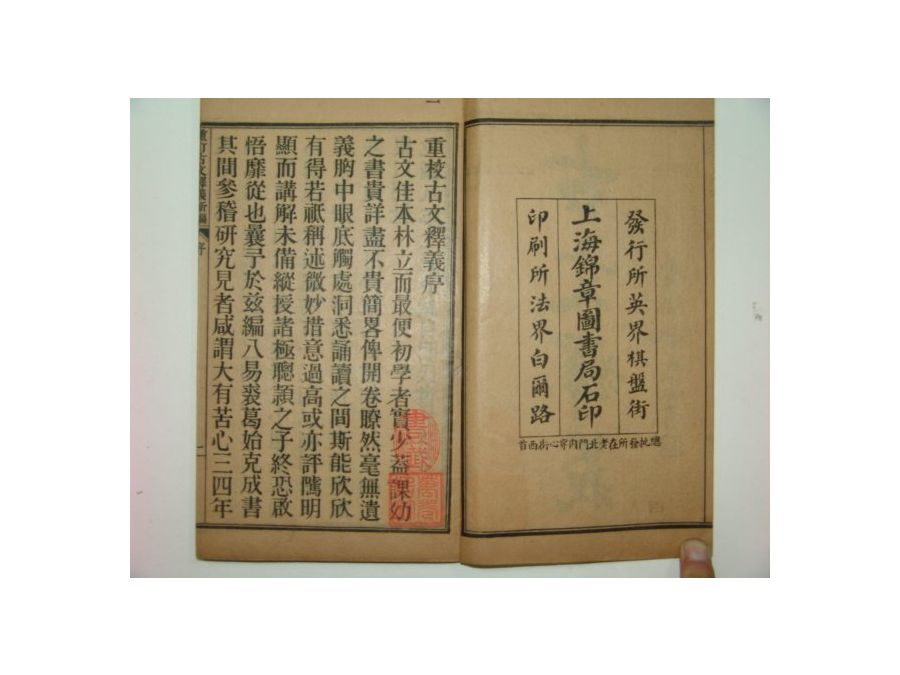 發行所英界棋盤街
上海錦章圖書局石印
印刷所法界白爾路
總批發所在老北門內穿心街西首
重校古文釋義序
古文佳本林立而最便初學者實少蓋課幼
之書貴詳盡不貴簡畧俾開卷瞭然毫無遺
義胸中眼底觸處洞悉誦讀之間斯能欣欣
有得若祇稱述微妙措意過高或亦評隲明
顯而講解未備縱授諸極聰頴之子終恐啟
悟靡從也曩予於兹編八易裘葛始克成書
其間參稽研究見者咸謂大有苦心三四年
重訂古文釋義新編
序
一